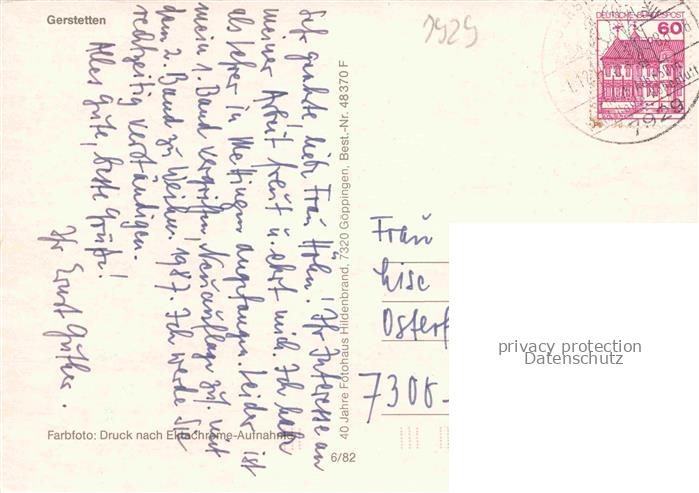 Gerstetten
1929
DEUTSCHE BUNDESPOST
60
7929
Sehr geehrte, liebe Frau Höhn! Ihr Interesse an
meiner Arbeit freut u. ehrt mich. Ich habe
als Lehrer in Mettingen angefangen. Leider ist
mein 1. Band vergriffen! Neuauflage zus. mit
dem 2. Band zu Weihn. 1987. Ich werde Sie
rechtzeitig verständigen.
Alles Gute, beste Grüße!
Ihr Ernst
40 Jahre Fotohaus Hildenbrand, 7320 Göppingen, Best.-Nr. 48370 F
Frau
Lise
7300-
privacy protection
Datenschutz
Farbfoto: Druck nach Ektachrome-Aufnahme
6/82